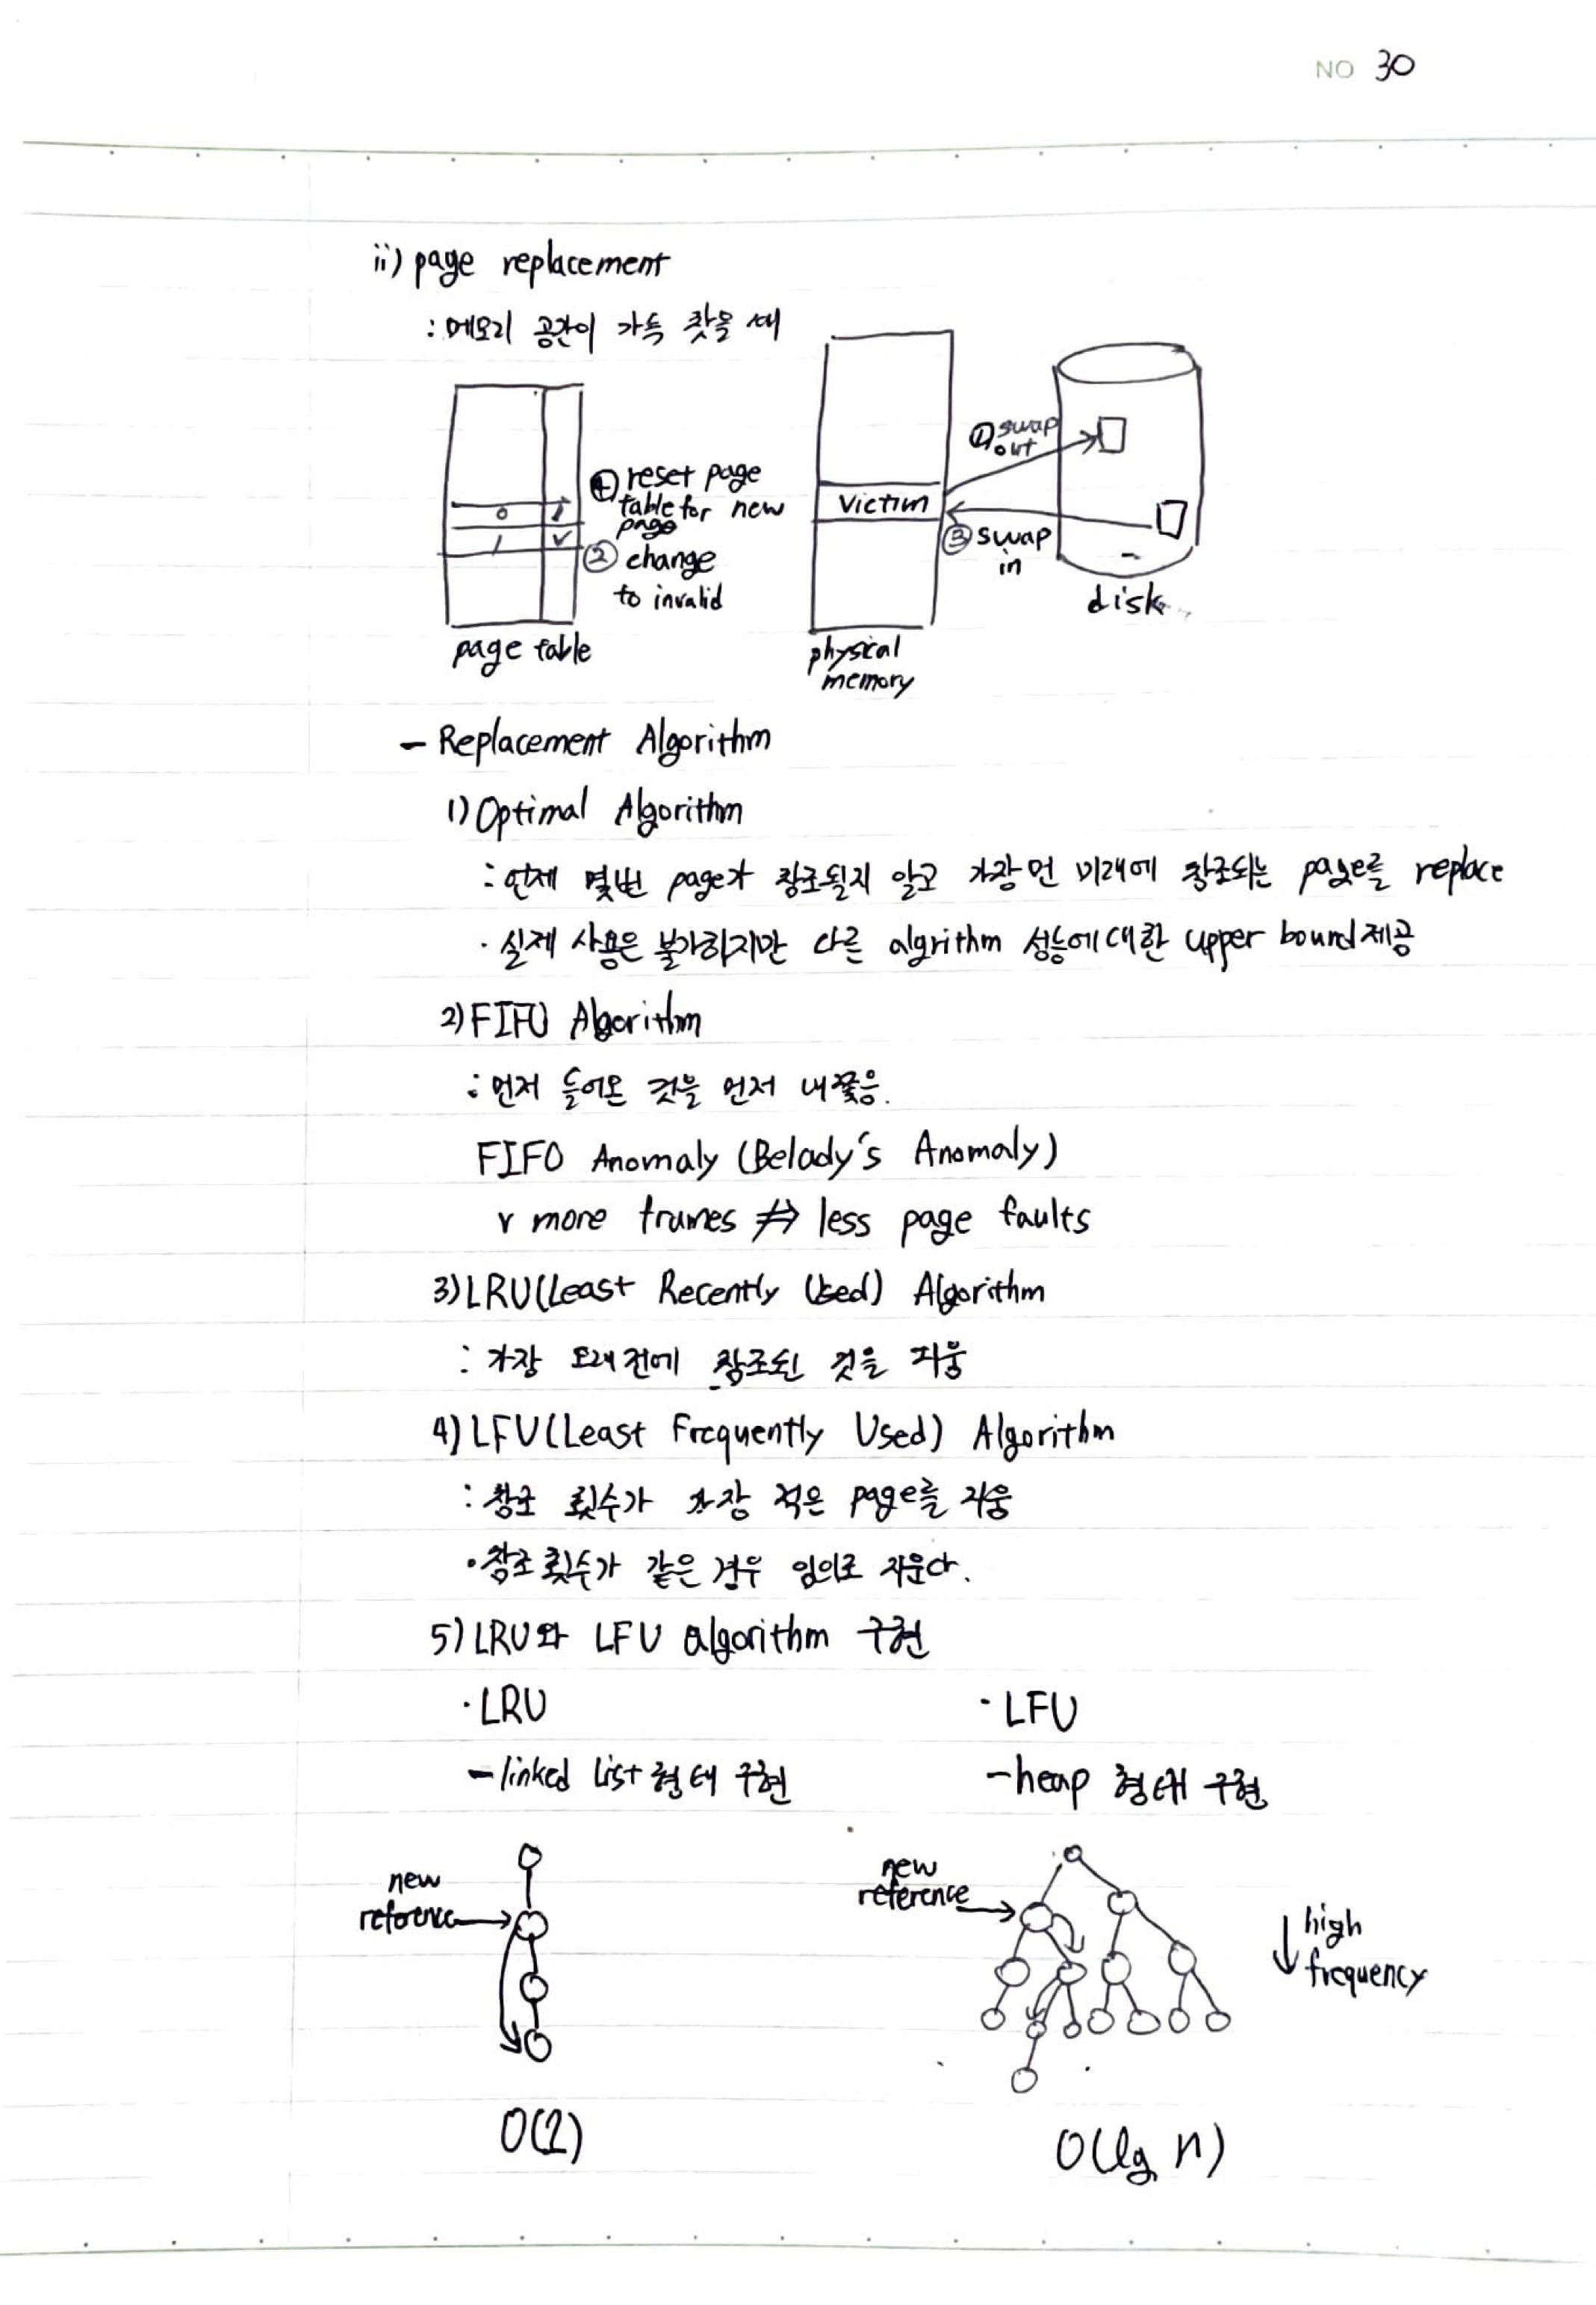 NO 30
ii) page replacement
: 메모리 공간이 가득 찼을 때
① swap out
④ reset page table for new page
0 i
1 v
② change to invalid
victim
③ swap in
disk
page table
physical memory
- Replacement Algorithm
1) Optimal Algorithm
: 언제 몇번 page가 참조될지 알고 가장 먼 미래에 참조되는 page를 replace
· 실제 사용은 불가하지만 다른 algrithm 성능에 대한 upper bound 제공
2) FIFO Algorithm
: 먼저 들어온 것을 먼저 내쫓음.
FIFO Anomaly (Belady's Anomaly)
v more frames ⇏ less page faults
3) LRU (Least Recently Used) Algorithm
: 가장 오래 전에 참조된 것을 지움
4) LFU (Least Frequently Used) Algorithm
: 참조 횟수가 가장 적은 page를 지움
· 참조 횟수가 같은 경우 임의로 지운다.
5) LRU와 LFU algorithm 구현
· LRU · LFU
- linked list 형태 구현 - heap 형태 구현
new reference
new reference
↓ high frequency
O(1)
O(lg n)